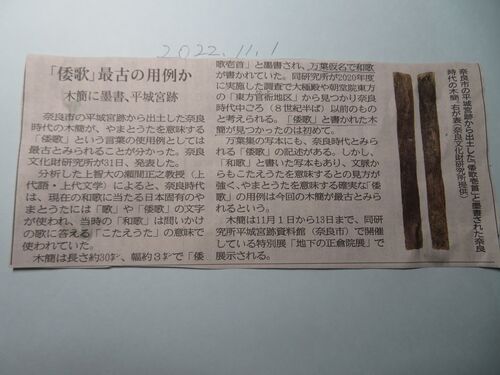 2022.11.1
「倭歌」最古の用例か
木簡に墨書、平城宮跡
奈良市の平城宮跡から出土した奈良
時代の木簡が、やまとうたを意味する
「倭歌」という言葉の使用例としては
最古とみられることが分かった。奈良
文化財研究所が31日、発表した。
分析した上智大の瀬間正之教授（上
代語・上代文学）によると、奈良時代
は、現在の和歌に当たる日本固有のや
まとうたには「歌」や「倭歌」の文字
が使われ、当時の「和歌」は問いかけ
の歌に答える「こたえうた」の意味で
使われていた。
木簡は長さ約30㌢、幅約3㌢で「倭
歌壱首」と墨書され、万葉仮名で和歌
が書かれていた。同研究所が2020年度
に実施した調査で大極殿や朝堂院東方
の「東方官衙地区」から見つかり奈良
時代中ごろ（8世紀半ば）以前のもの
と考えられる。「倭歌」と書かれた木
簡が見つかったのは初めて。
万葉集の写本にも、奈良時代とみら
れる「倭歌」の記述がある。しかし、
「和歌」と書いた写本もあり、文脈か
らもこたえうたを意味するとの見方が
強く、やまとうたを意味する確実な「倭
歌」の用例は今回の木簡が最古とみら
れるという。
木簡は11月1日から13日まで、同研
究所平城宮跡資料館（奈良市）で開催
している特別展「地下の正倉院展」で
展示される。
奈良市の平城宮跡から出土した「倭歌壱首」と墨書された奈良
時代の木簡。右が表（奈良文化財研究所提供）